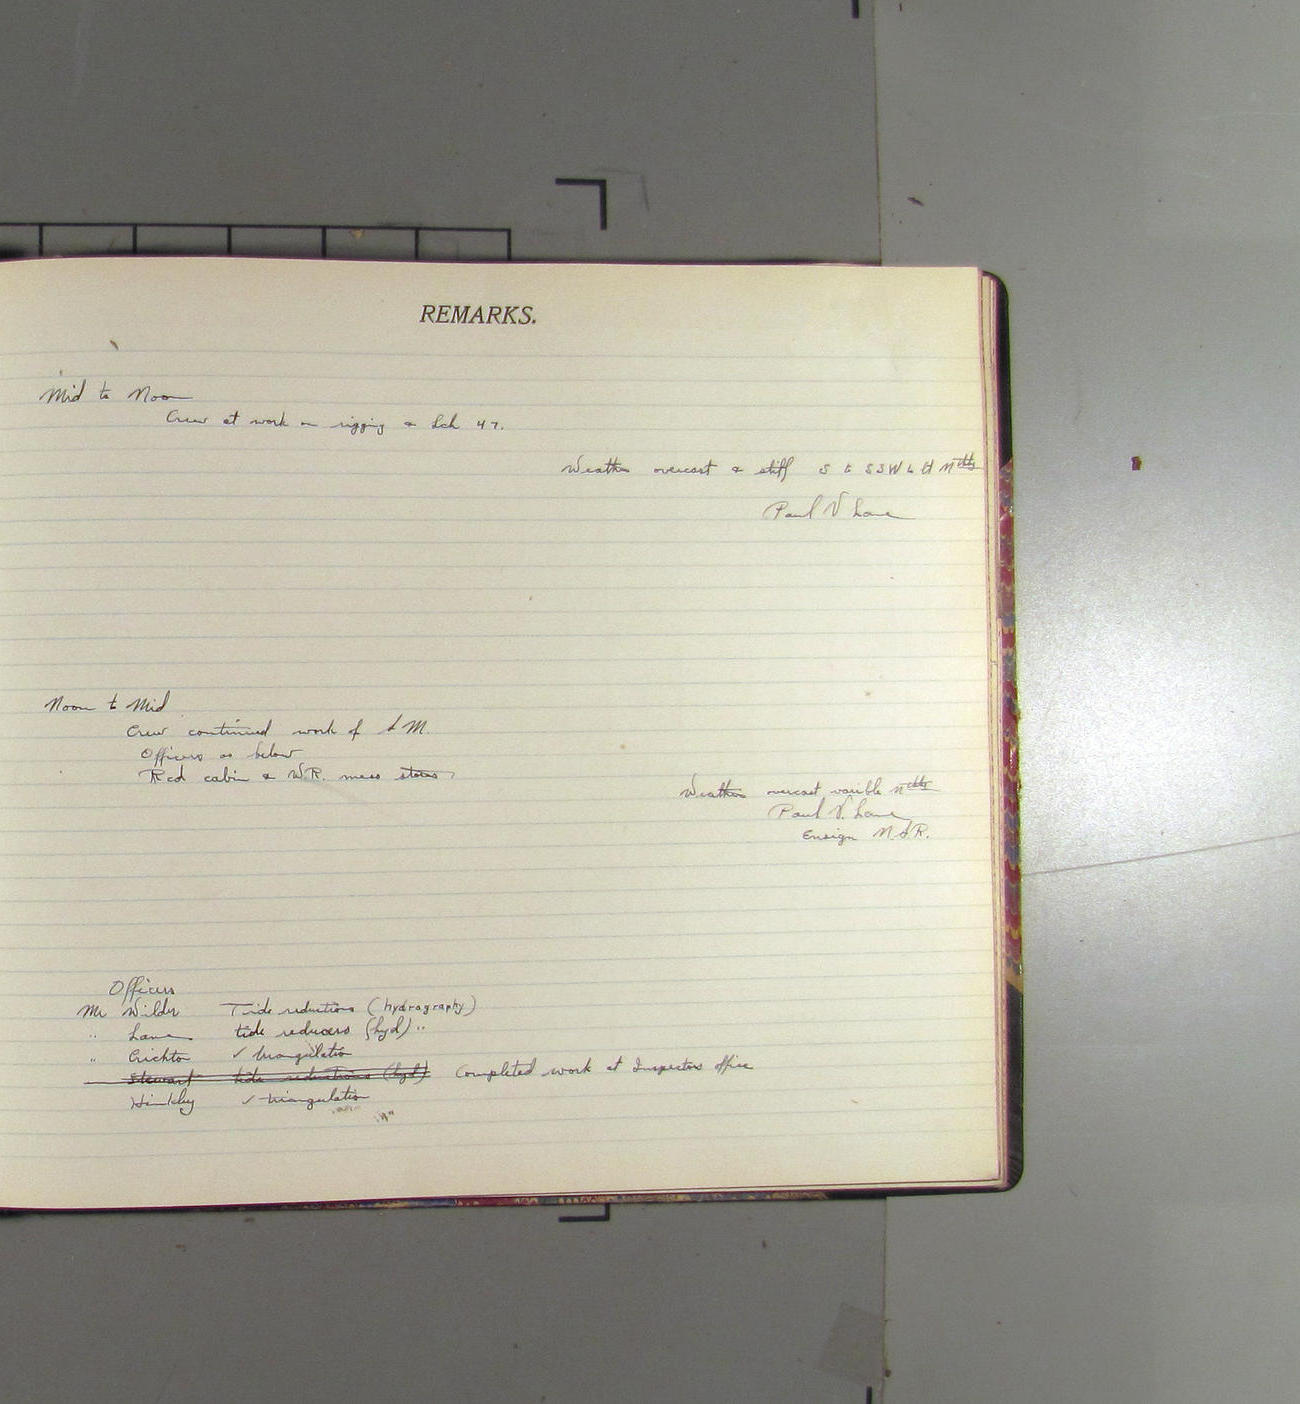 REMARKS.
Mid to Noon
Crew at work on rigging & Lch 47.
Weather overcast & stiff S to SSW
Paul V Lane
Noon to Mid
Crew continued work of AM.
Officers as below
Rcd cabin & W.R. mess stores
Weather overcast varible
Paul V. Lane
Ensign N.N.R.
Officers
Mr Wilder Tide reductions (hydrography)
" Lane tide reducers (hyd) "
" Crichton ✓ triangulation
Stewart tide reductions (hyd) Completed work at Inspectors office
Hinkley ✓ triangulation